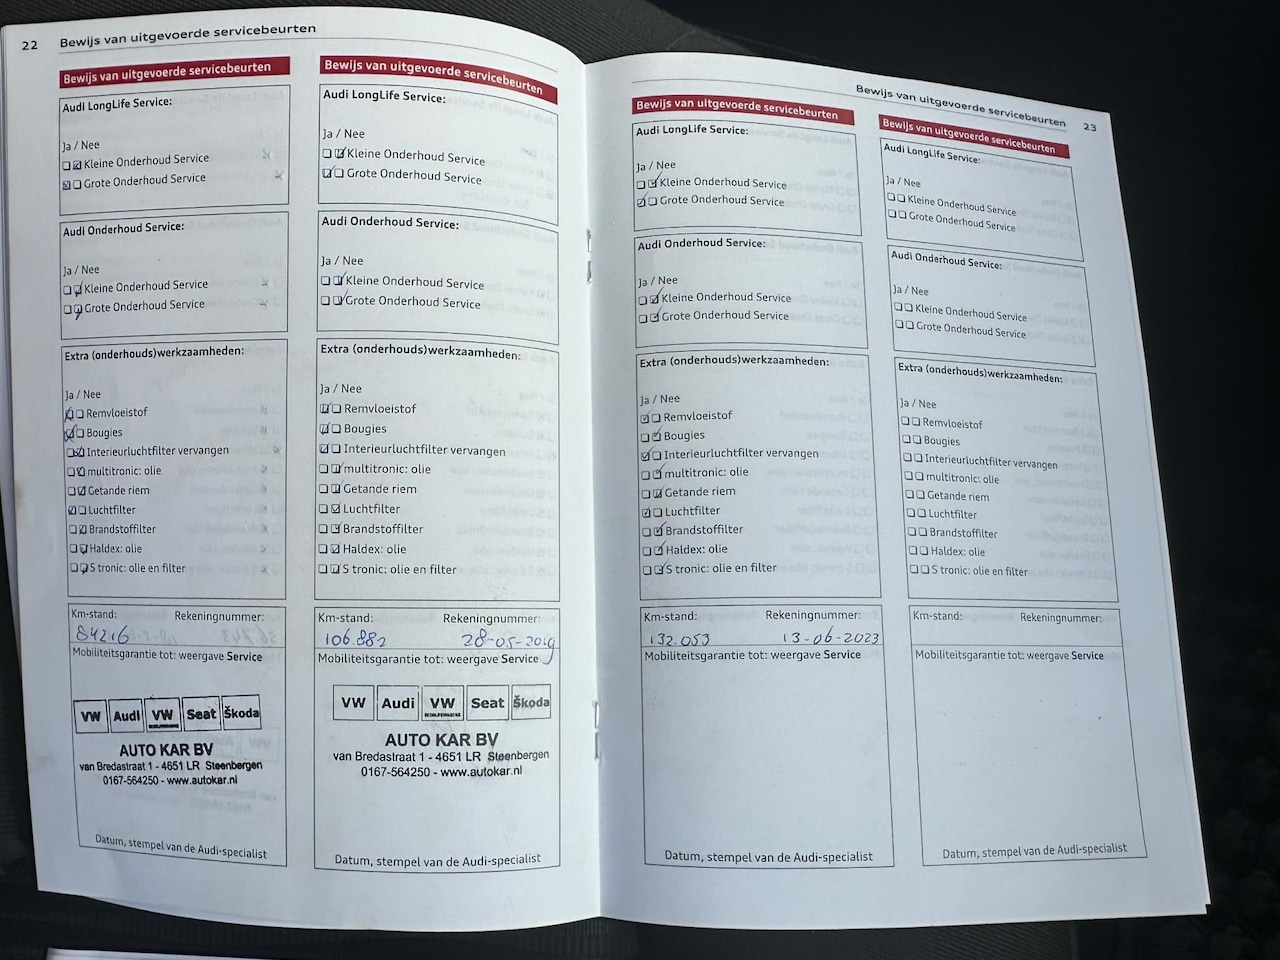 22 Bewijs van uitgevoerde servicebeurten
Bewijs van uitgevoerde servicebeurten
Audi LongLife Service:
Ja / Nee
Kleine Onderhoud Service
Grote Onderhoud Service
Audi Onderhoud Service:
Ja / Nee
Kleine Onderhoud Service
Grote Onderhoud Service
Extra (onderhouds)werkzaamheden:
Ja / Nee
Remvloeistof
Bougies
Interieurluchtfilter vervangen
multitronic: olie
Getande riem
Luchtfilter
Brandstoffilter
Haldex: olie
S tronic: olie en filter
Km-stand: Rekeningnummer:
84216
Mobiliteitsgarantie tot: weergave Service
VW Audi VW Seat Škoda
AUTO KAR BV
van Bredastraat 1 - 4651 LR Steenbergen
0167-564250 - www.autokar.nl
Datum, stempel van de Audi-specialist
Bewijs van uitgevoerde servicebeurten
Audi LongLife Service:
Ja / Nee
Kleine Onderhoud Service
Grote Onderhoud Service
Audi Onderhoud Service:
Ja / Nee
Kleine Onderhoud Service
Grote Onderhoud Service
Extra (onderhouds)werkzaamheden:
Ja / Nee
Remvloeistof
Bougies
Interieurluchtfilter vervangen
multitronic: olie
Getande riem
Luchtfilter
Brandstoffilter
Haldex: olie
S tronic: olie en filter
Km-stand: Rekeningnummer:
106.882 28-05-2019
Mobiliteitsgarantie tot: weergave Service
VW Audi VW Seat Škoda
AUTO KAR BV
van Bredastraat 1 - 4651 LR Steenbergen
0167-564250 - www.autokar.nl
Datum, stempel van de Audi-specialist
Bewijs van uitgevoerde servicebeurten 23
Bewijs van uitgevoerde servicebeurten
Audi LongLife Service:
Ja / Nee
Kleine Onderhoud Service
Grote Onderhoud Service
Audi Onderhoud Service:
Ja / Nee
Kleine Onderhoud Service
Grote Onderhoud Service
Extra (onderhouds)werkzaamheden:
Ja / Nee
Remvloeistof
Bougies
Interieurluchtfilter vervangen
multitronic: olie
Getande riem
Luchtfilter
Brandstoffilter
Haldex: olie
S tronic: olie en filter
Km-stand: Rekeningnummer:
132.053 13-06-2023
Mobiliteitsgarantie tot: weergave Service
Datum, stempel van de Audi-specialist
Bewijs van uitgevoerde servicebeurten
Audi LongLife Service:
Ja / Nee
Kleine Onderhoud Service
Grote Onderhoud Service
Audi Onderhoud Service:
Ja / Nee
Kleine Onderhoud Service
Grote Onderhoud Service
Extra (onderhouds)werkzaamheden:
Ja / Nee
Remvloeistof
Bougies
Interieurluchtfilter vervangen
multitronic: olie
Getande riem
Luchtfilter
Brandstoffilter
Haldex: olie
S tronic: olie en filter
Km-stand: Rekeningnummer:
Mobiliteitsgarantie tot: weergave Service
Datum, stempel van de Audi-specialist